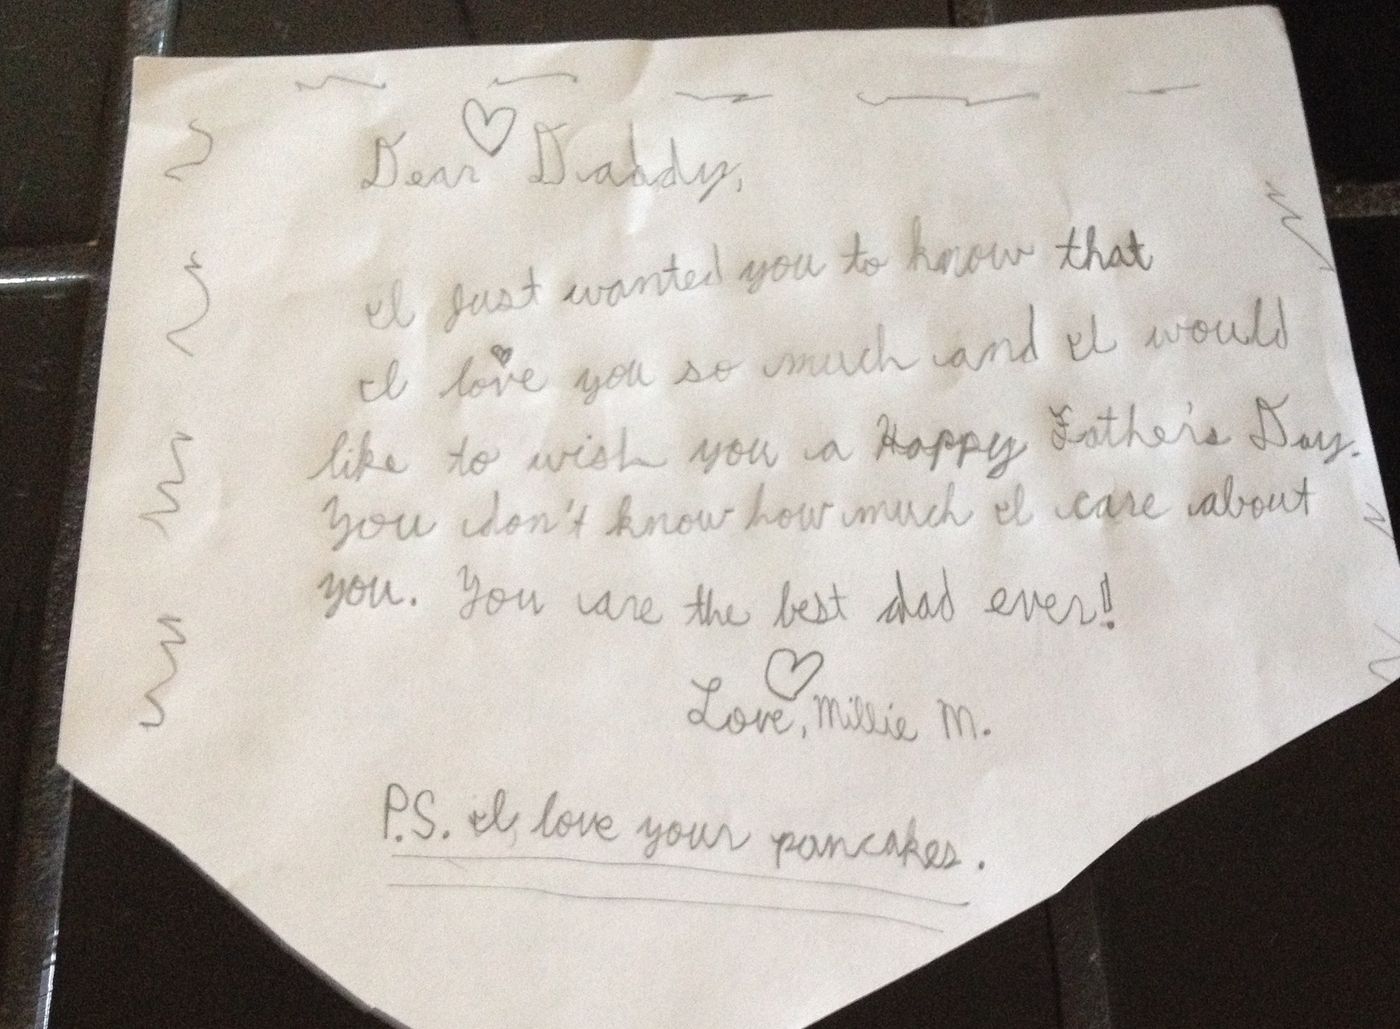 Dear Daddy,
I just wanted you to know that
I love you so much and I would
like to wish you a Happy Father's Day.
You don't know how much I care about
you. You are the best dad ever!
Love, Millie M.
P.S. I love your pancakes.